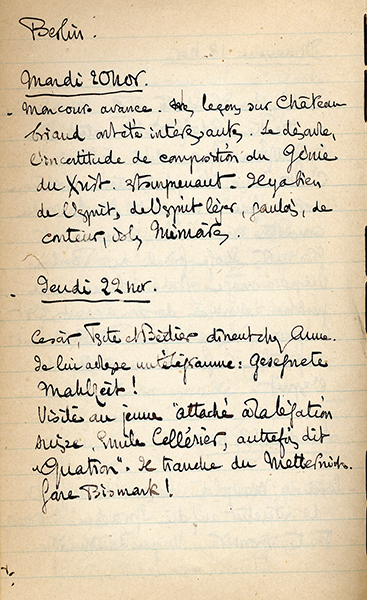 Berlin.
Mardi 20 nov.
Mon cours avance. Mes leçons sur Chateau-
briand ont été intéressantes. Le désordre,
l'incertitude de composition du Génie
du Xrist. est surprenant. Il y a bien
de l'esprit, de l'esprit léger, gaulois, de
conteur, ds les Mémoires.
Jeudi 22 nov.
César, et Bédier dînent chez Anne.
Je lui adresse un télégramme: Gesegnete
Mahlzeit!
Visite au jeune "attaché à la légation
suisse, Emile Cellérier, autrefois dit
"Quation". Il tranche du Metternich.
Gare Bismark!